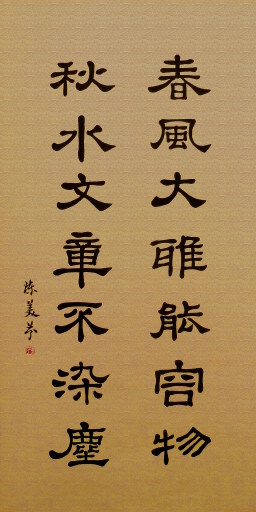 春風大雅能容物
秋水文章不染塵
陈美芬